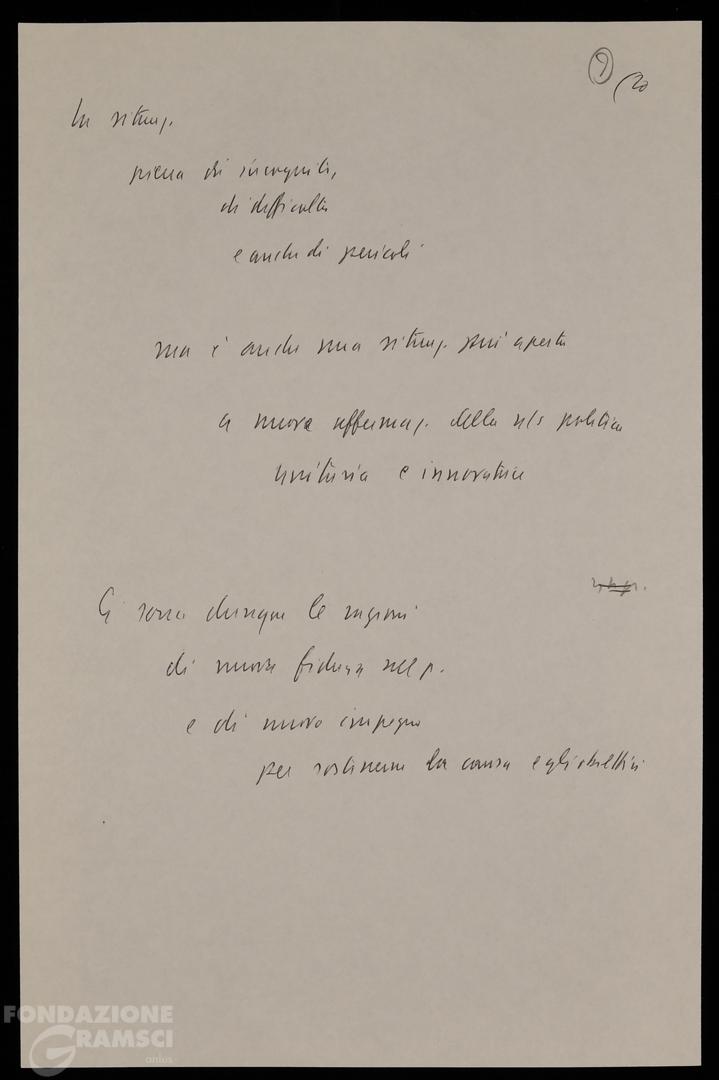 9 (20
In situaz.
piena di incogniti,
di difficoltà
e anche di pericoli
ma è anche una situaz. più aperta
a nuova affermaz. della n/s politica
unitaria e innovatrice
Ci sono dunque le ragioni
di nuova fiducia nel p.
e di nuovo impegno
per sostenerne la causa e gli obiettivi
FONDAZIONE
GRAMSCI
onlus